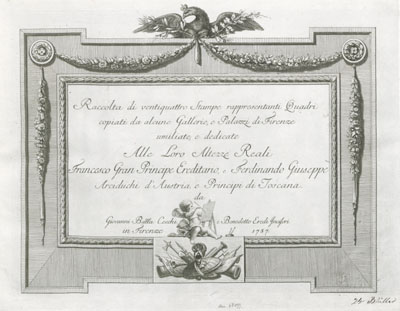 Raccolta di ventiquattro Stampe rappresentanti Quadri
copiati da alcune Gallerie, e Palazzi di Firenze
umiliate, e dedicate
Alle Loro Altezze Reali
Francesco Gran Principe Ereditario, e Ferdinando Giuseppe
Arciduchi d'Austria, e Principi di Toscana
da
Giovanni Batta Cecchi e Benedetto Eredi Incisori
in Firenze 1787.